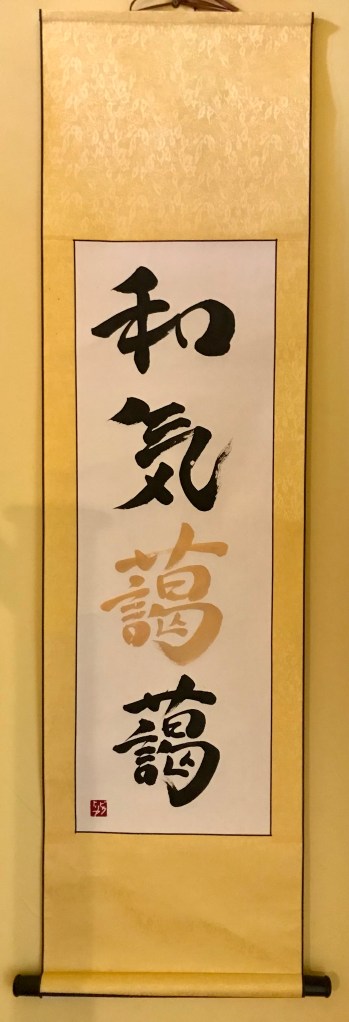 和気藹藹